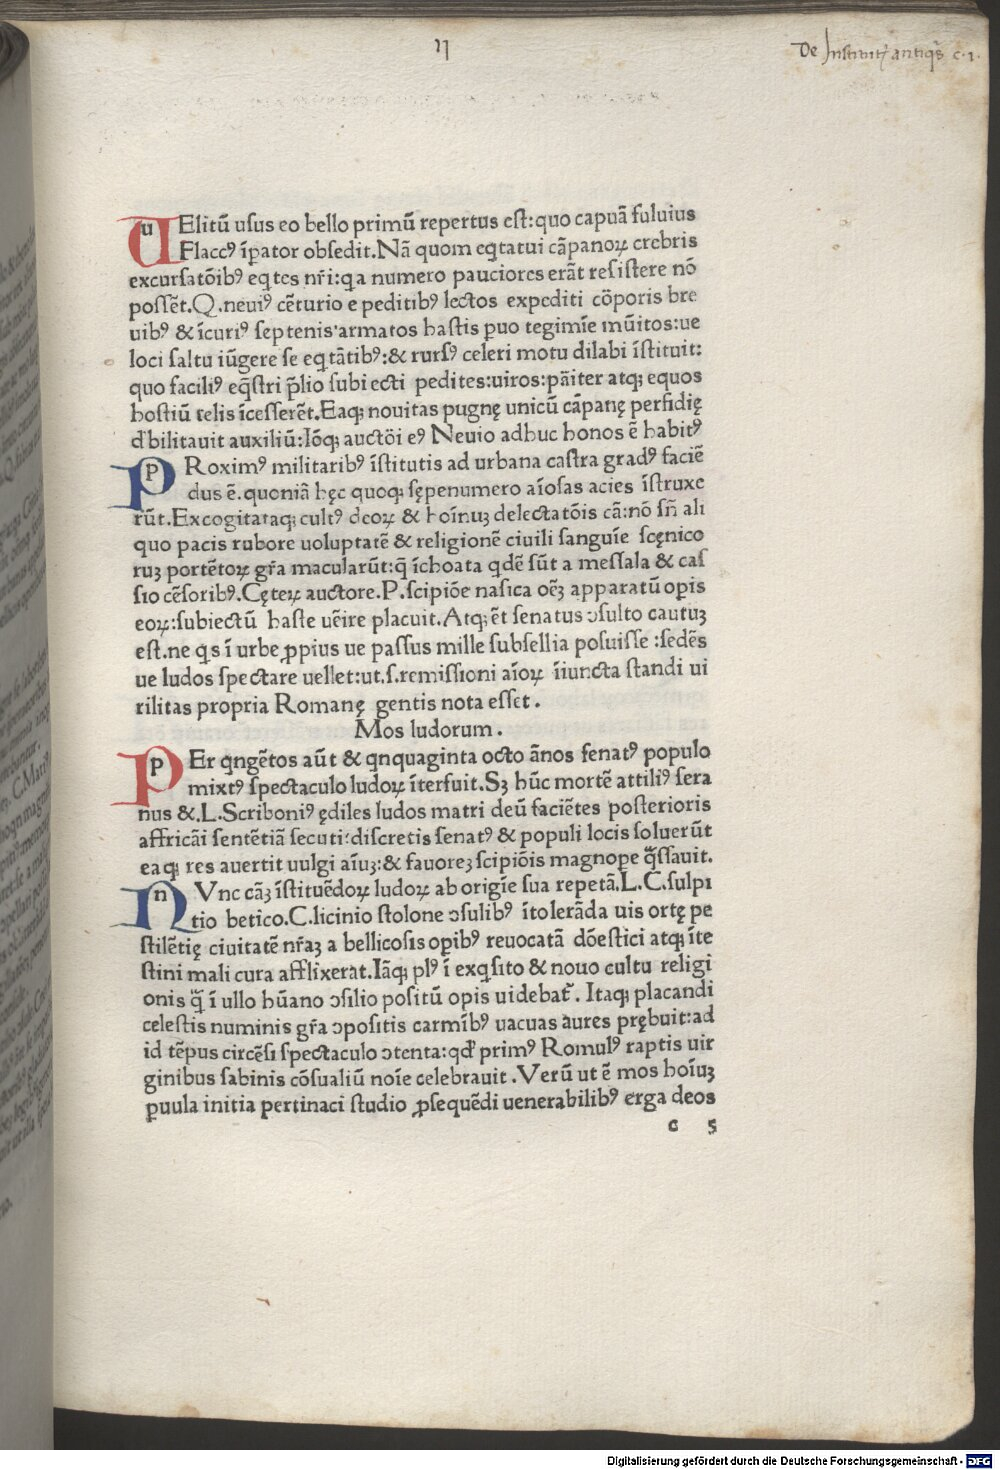 II
De Institut; antiqs c. 1.
UElitū usus eo bello primū repertus est:quo capuā fuluius
Flaccꝰ īpator obsedit.Nā quom eqtatui cāpanoꝝ crebris
excursatōibꝰ eqtes nr̄i:qa numero pauciores erāt resistere nō
possēt.Q.neuiꝰ cēturio e peditibꝰ lectos expediti cōporis bre
uibꝰ & īcuriꝰ septenis armatos hastis puo tegimīe mūitos:ue
loci saltu iūgere se eqtātibꝰ:& rursꝰ celeri motu dilabi īstituit:
quo faciliꝰ eq̄stri p̄lio subiecti pedites:uiros:pāiter atqꝫ equos
hostiū telis īcesserēt.Eaqꝫ nouitas pugnę unicū cāpanę perfidię
d'bilitauit auxiliū:Iōqꝫ auctōi eꝰ Neuio adhuc honos ē habitꝰ
PRoximꝰ militaribꝰ īstitutis ad urbana castra gradꝰ faciē
dus ē.quoniā hęc quoqꝫ sępenumero aīosas acies īstruxe
rūt.Excogitataqꝫ cultꝰ deoꝝ & hoīnuꝫ delectatōis cā:nō sn̄ ali
quo pacis rubore uoluptatē & religionē ciuili sanguīe scęnico
ruꝫ portētoꝝ gr̄a macularūt:q̄ īchoata qdē sūt a messala & cas
sio cēsoribꝰ.Cęteꝝ auctore.P.scipiōe nasica oēꝫ apparatū opis
eoꝝ:subiectū haste uēire placuit.Atqꝫ ēt senatus ↄsulto cautuꝫ
est.ne qs ī urbe ꝓpius ue passus mille subsellia posuisse :sedēs
ue ludos spectare uellet:ut.s.remissioni aīoꝝ īiuncta standi ui
rilitas propria Romanę gentis nota esset.
Mos ludorum.
PEr qngētos aūt & qnquaginta octo ānos senatꝰ populo
mixtꝰ spectaculo ludoꝝ īterfuit.Sꝫ hūc mortē attiliꝰ sera
nus &.L.Scriboniꝰ ędiles ludos matri deū faciētes posterioris
affricāi sentētiā secuti:discretis senatꝰ & populi locis soluerūt
eaqꝫ res auertit uulgi aīuꝫ:& fauoreꝫ scipiōis magnope q̄ssauit.
NVnc cāꝫ īstituēdoꝝ ludoꝝ ab origīe sua repetā.L.C.sulpi
tio betico.C.licinio stolone ↄsulibꝰ ītolerāda uis ortę pe
stilētię ciuitatē nr̄aꝫ a bellicosis opibꝰ reuocatā dōestici atqꝫ īte
stini mali cura afflixerat.Iāqꝫ plꝰ ī exqsito & nouo cultu religi
onis q̄ ī ullo hūano ↄsilio positū opis uidebat᷑. Itaqꝫ placandi
celestis numinis gr̄a ↄpositis carmībꝰ uacuas aures prębuit:ad
id tēpus circēsi spectaculo ↄtenta:qd' primꝰ Romulꝰ raptis uir
ginibus sabinis cōsualiū noīe celebrauit.Verū ut ē mos hoīuꝫ
puula initia pertinaci studio ꝓsequēdi uenerabilibꝰ erga deos
c 5
Digitalisierung gefördert durch die Deutsche Forschungsgemeinschaft - DFG